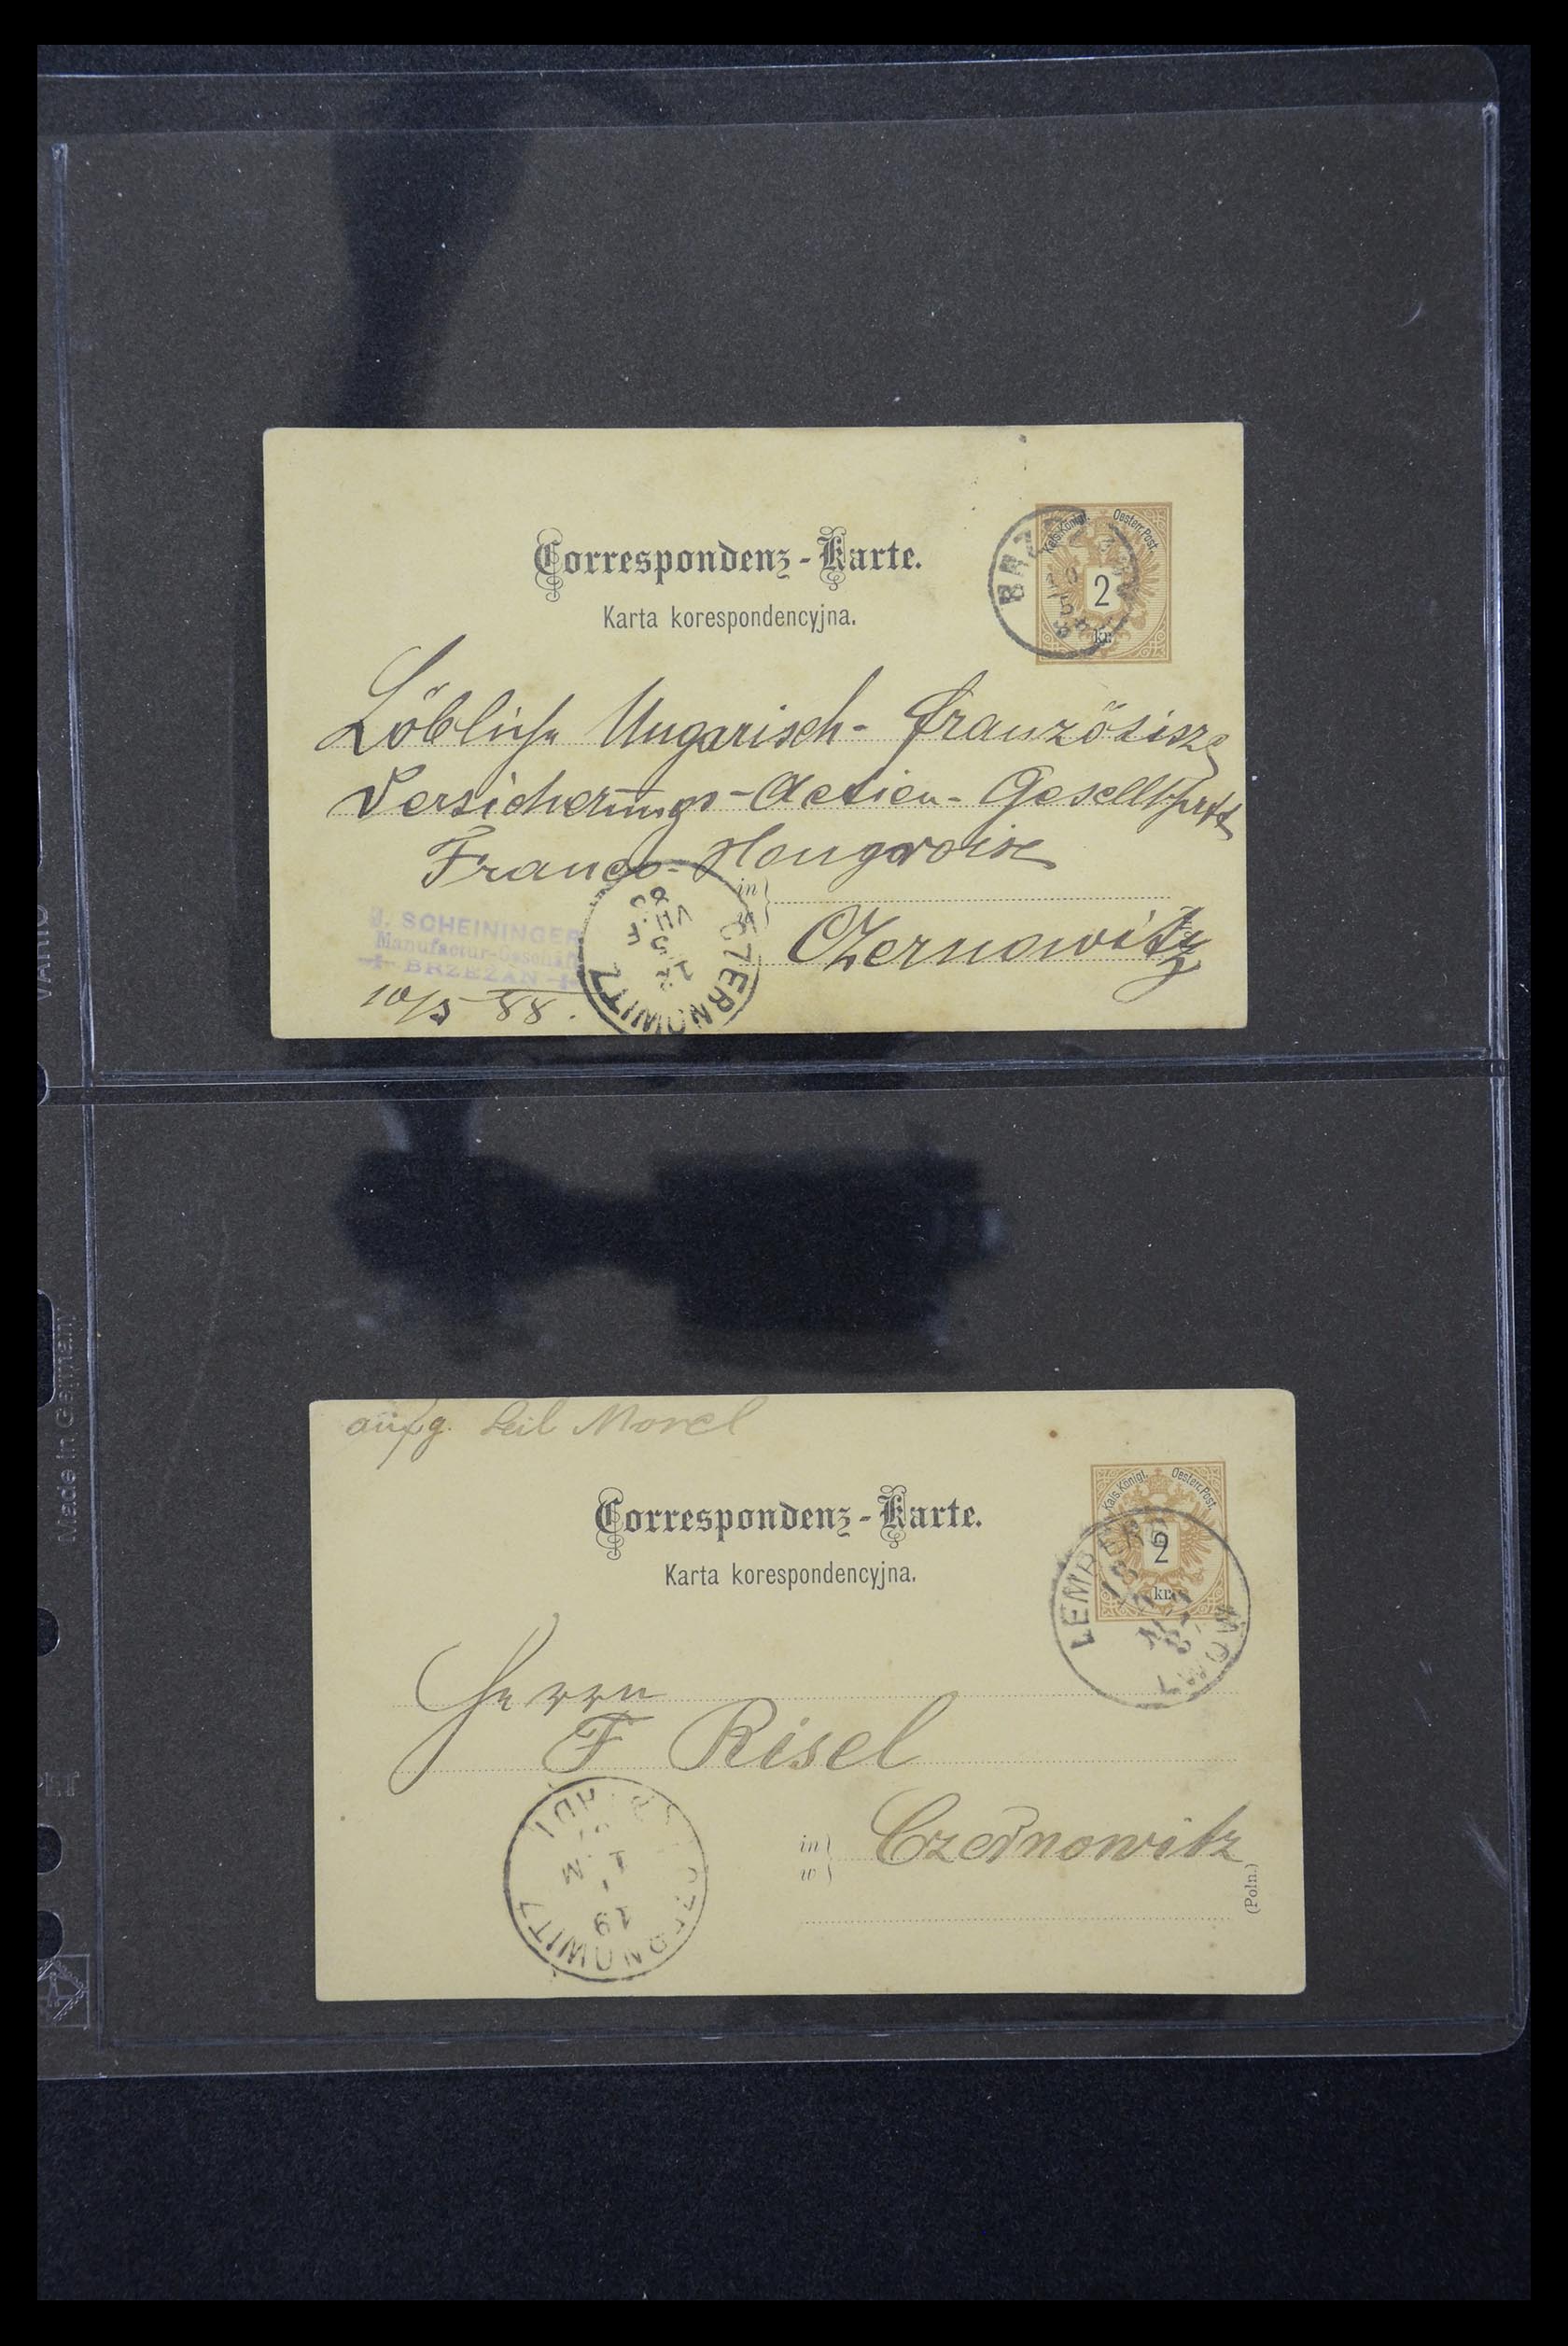 Correspondenz-Karte.
Karta korespondencyjna.
Kais. Königl. Oesterr. Post.
2
kr.
Löbliche Ungarisch- französisze
Versicherungs-Actien-Gesellschaft
Franco-Hongroise
in
Czernowitz
J. SCHEININGER
Manufactur-Geschäft
BRZEŻAN
10/5 88.
CZERNOWITZ
12 5
88
VARIO
Made in Germany
aufg. Leil Morel
Correspondenz-Karte.
Karta korespondencyjna.
Kais. Königl. Oesterr. Post.
2
kr.
LEMBERG
LWÓW
Herrn
F Risel
in
w
Czernowitz
(Poln.)
CZERNOWITZ
19